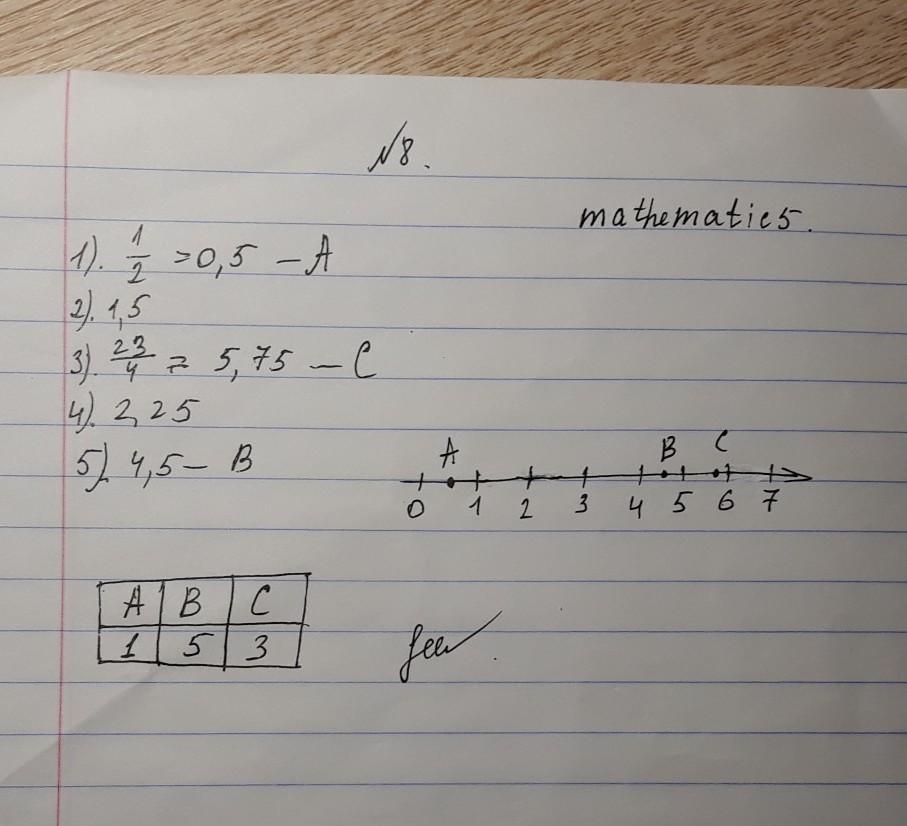 №8.
mathematics.
1). 1/2 = 0,5 – A
2). 1,5
3). 23/4 = 5,75 – C
4). 2,25
5). 4,5 – B
A B C
0 1 2 3 4 5 6 7
A B C
1 5 3